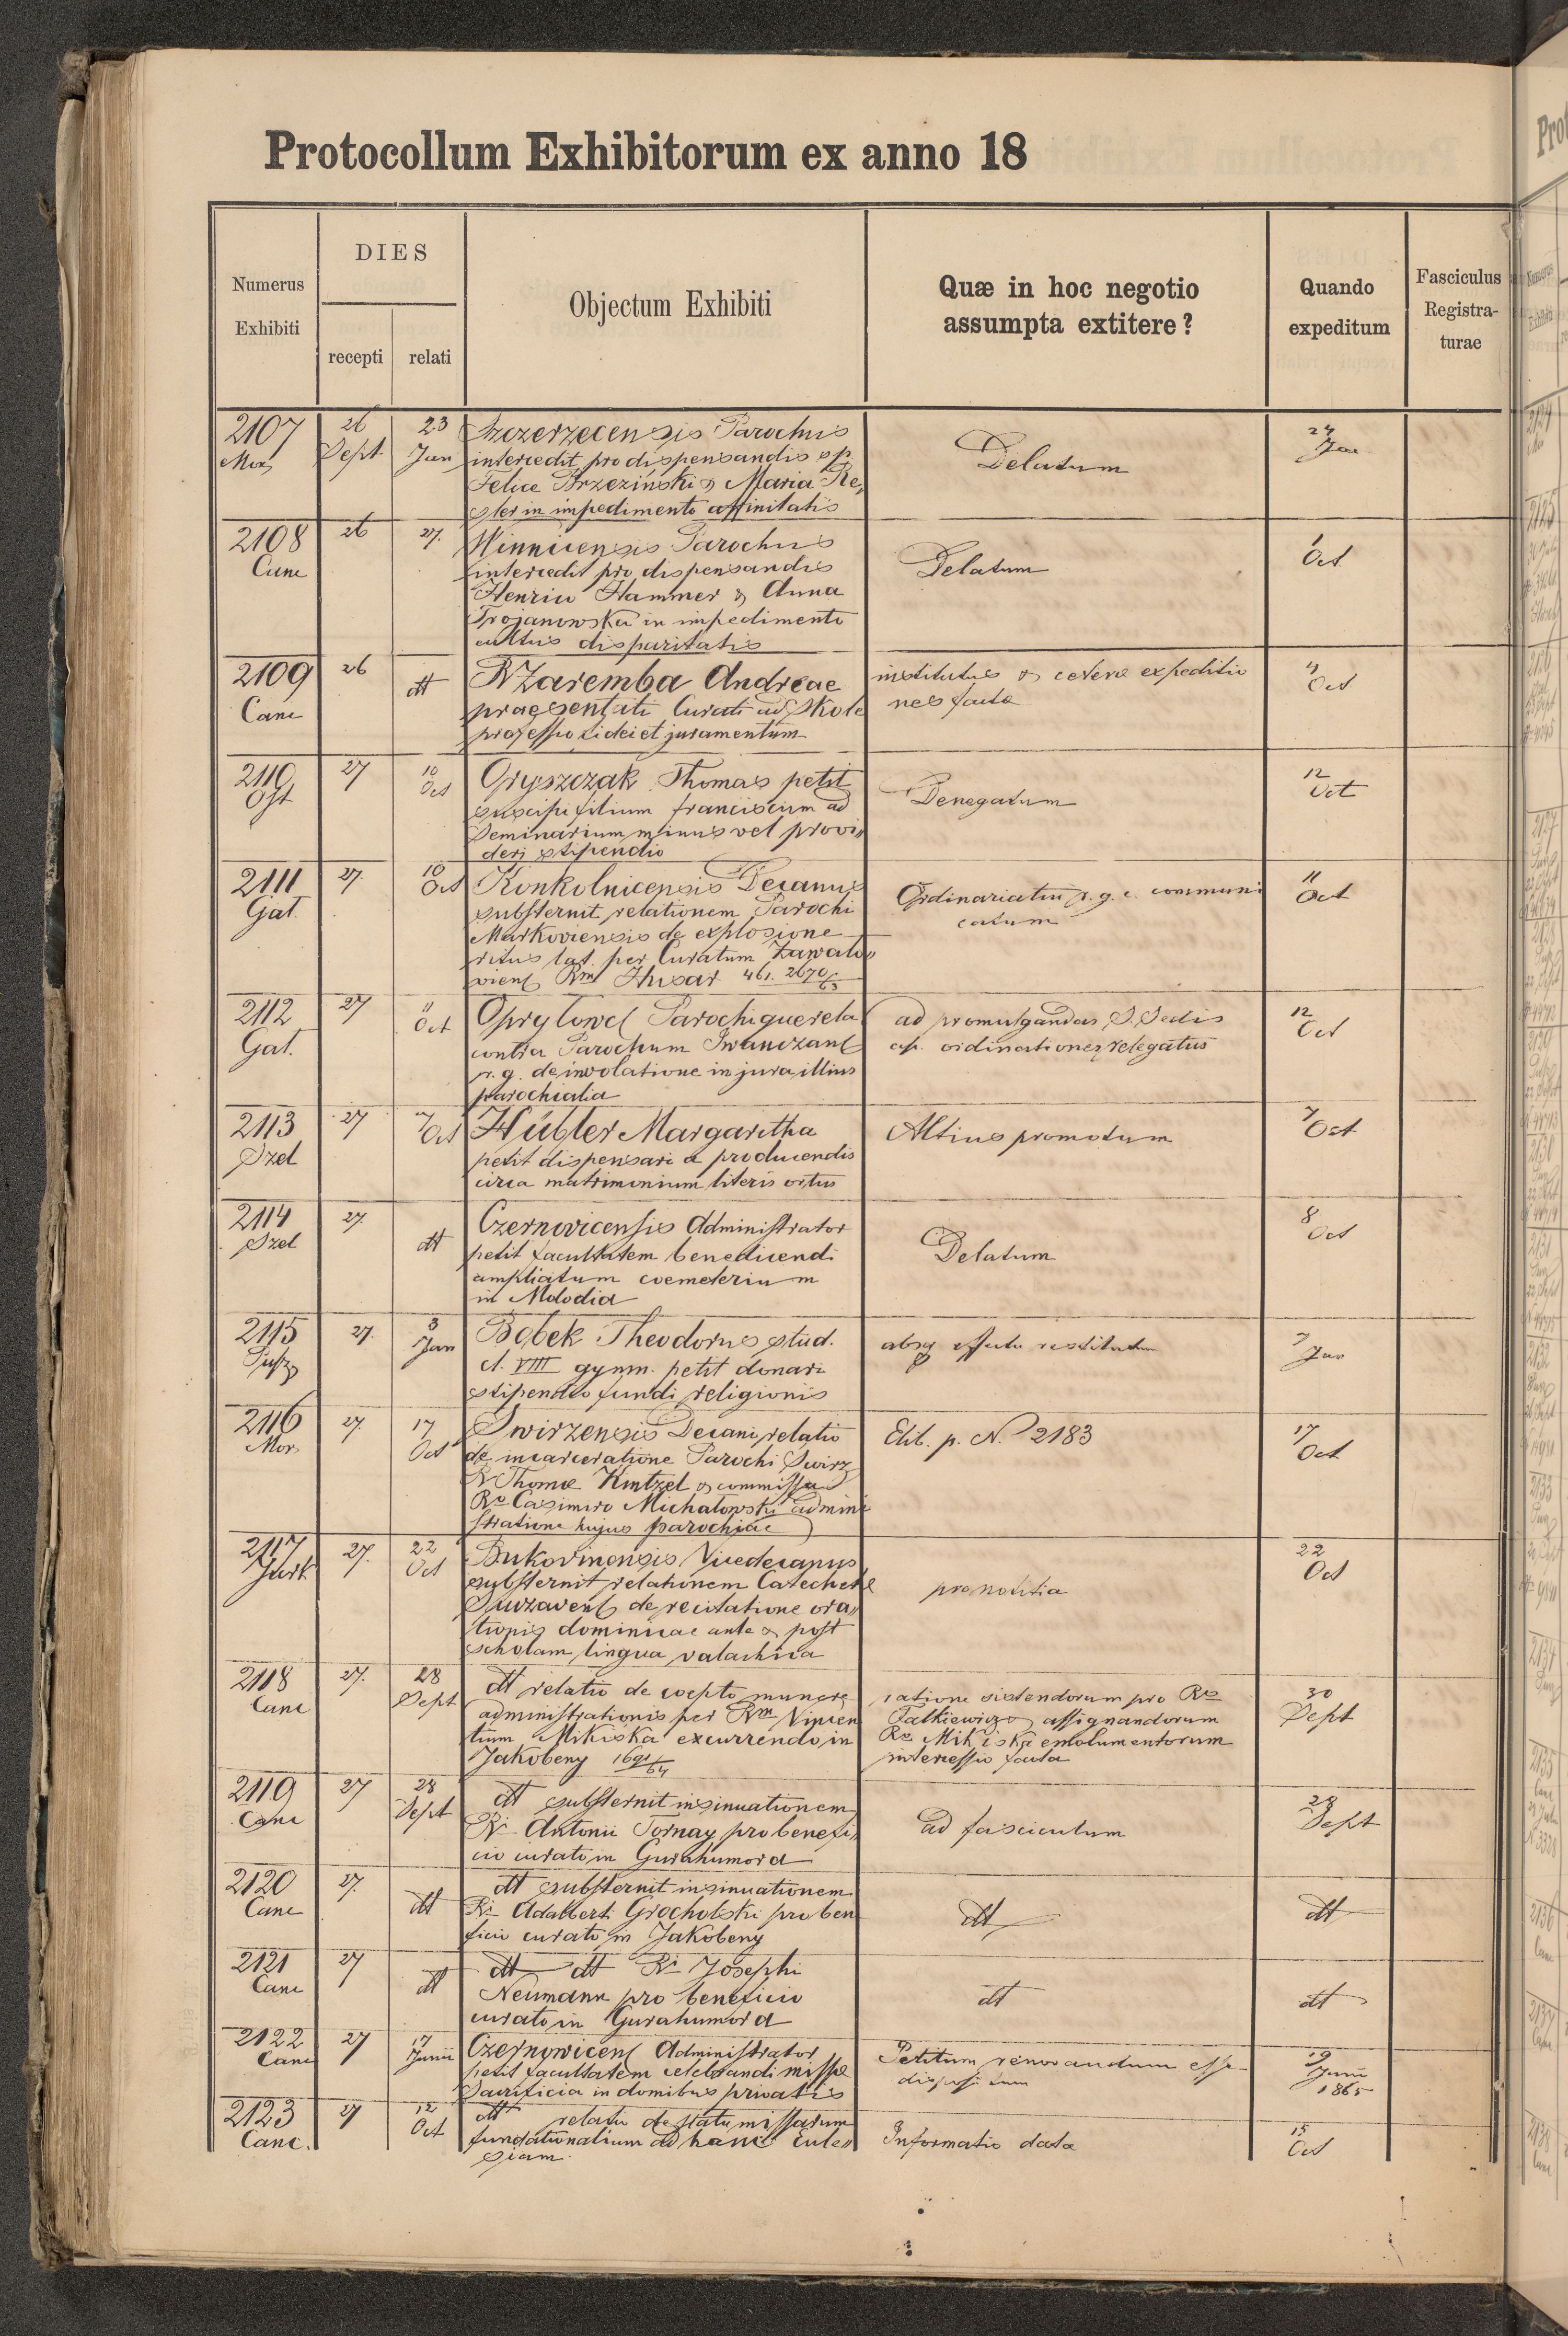 Protocollum Exhibitorum ex anno 18
Numerus Exhibiti
DIES
recepti
relati
Objectum Exhibiti
Quæ in hoc negotio
assumpta extitere?
Quando
expeditum
Fasciculus
Registra-
turae
2107 26 23 Szczerzecensis Parochus
Mor Sept Jan intercedit pro dispensandis sp. Delatum 24 Jan
Felice Brzeziński & Maria Re„
ster in impedimento affinitatis
2108 26 27. Winnicensis Parochus
Canc intercedit pro dispensandis Delatum 1 Oct
Henrico Hammer & Anna
Trojanowska in impedimento
cultus disparitatis
2109 26 dt R Zaremba Andreae institutus & cetera expeditio 4 Oct
Canc praesentati Curati ad Skole nes facta
professio fidei et juramentum
2110 27 10 Oct Gryszczak Thomas petit Denegatum 12 Oct
Ost suscipi filium Franciscum ad
Seminarium minus vel provi„
deri stipendio
2111 27. 10 Oct Konkolnicensis Decanus Ordinariatui r. g. c. communi 11 Oct
Gat. substernit relationem Parochi catum
Markoviensis de explosione
ritus lat. per Curatum Zawalo„
viens Rm Husar 461. 2670/63
2112 27 11 Oct Oprylowc Parochi querela ad promulgandas S. Sedis 12 Oct
Gat. contra Parochum Iwanczans ap. ordinationes relegatus
r. g. de involatione in jura illius
parochialia
2113 27 7 Oct Hübler Margaretha Altius promotum 7 Oct
Szel petit dispensari a producendis
circa matrimonium literis ortus
2114 27. dt Czernovicensis Administrator 8 Oct
Szel petit facultatem benedicendi Delatum
ampliatum coemeterium
in Molodia
2115 27. 3 Jan Bobek Theodorus stud. absq effectu restitutum 7 Jan
cl. VIII gymn. petit donari
stipendio fundi religionis
2116 27. 17 Oct Swirzensis Decani relatio Elib. p. N. 2183 17 Oct
Mor de incarceratione Parochi Swirz
R Thomæ Kintzel & commissa
Ro Casimiro Michalowski admini
stratione hujus parochiae
2117 27. 22 Oct Bukovinensis Vicedecanus 22 Oct
Jurk substernit relationem Catechetæ pro notitia
Suczavens de recitatione ora„
tionis dominicae ante & post
scholam lingua valachica
2118 27. 28 Sept dt relatio de coepto munere ratione sistendorum pro Ro 30 Sept
Canc administrationis per Rm Vincen Falkiewicz & assignandorum
tium Mikiska excurrendo in Ro Mikiska emolumentorum
Jakobeny 1691/64 intercessio facta
2119 27 28 Sept dt substernit insinuationem 28 Sept
Canc Ri Antonii Tornay pro benefi„ ad fasciculum
cio curato in Gurahumora
2120 27. dt dt substernit insinuationem
Canc Ri Adalberti Grocholski pro ben dt dt
ficio curato in Jakobeny
2121 27 dt dt dt Ri Josephi
Canc Neumann pro beneficio dt dt
curato in Gurahumora
2122 27 17 Junii Czernowicens Administrator Petitum renovandum esse 19 Junii
Canc petit facultatem celebrandi missæ dispositum 1865
Sacrificia in domibus privatis
2123 27 12 Oct dt relatio de statu missarum
Canc. fundationalium ad hanc Eccle„ Informatio data 15 Oct
siam